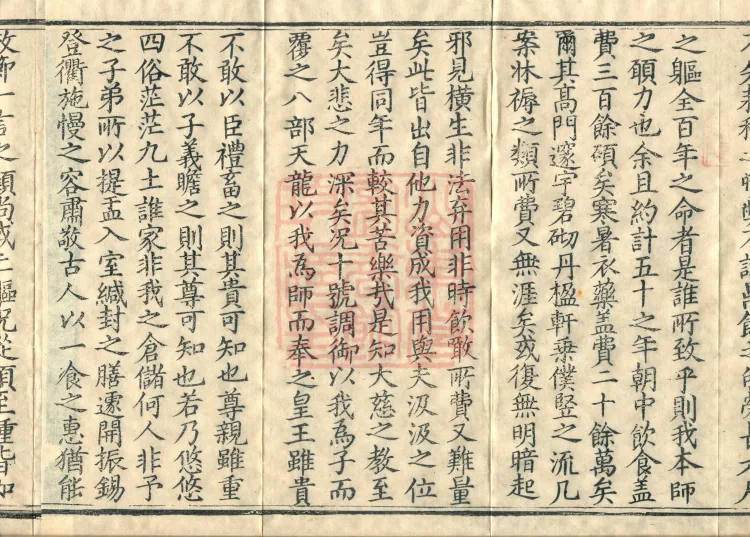 之軀全百年之命者是誰所致乎則我本師
之頋力也余且約計五十之年朝中飲食盖
費三百餘碩矣寒暑衣藥盖費二十餘萬矣
爾其髙門邃宇碧砌丹楹軒乗僕竪之流几
案牀褥之類所費又無涯矣或復無明暗起
邪見橫生非法弃用非時飲噉所費又難量
矣此皆出自他力資成我用與夫汲汲之位
豈得同年而較其苦樂㢤是知大慈之教至
矣大悲之力深矣况十號調御以我為子而
覆之八部天龍以我為師而奉之皇王雖貴
不敢以臣禮畜之則其貴可知也尊親雖重
不敢以子義瞻之則其尊可知也若乃悠悠
四俗茫茫九土誰家非我之倉儲何人非予
之子弟所以提盂入室緘封之膳遽開振錫
登衢施慢之容肅敬古人以一飡之惠猶能
節一言之顧尚或亡軀况從頂至踵皆如